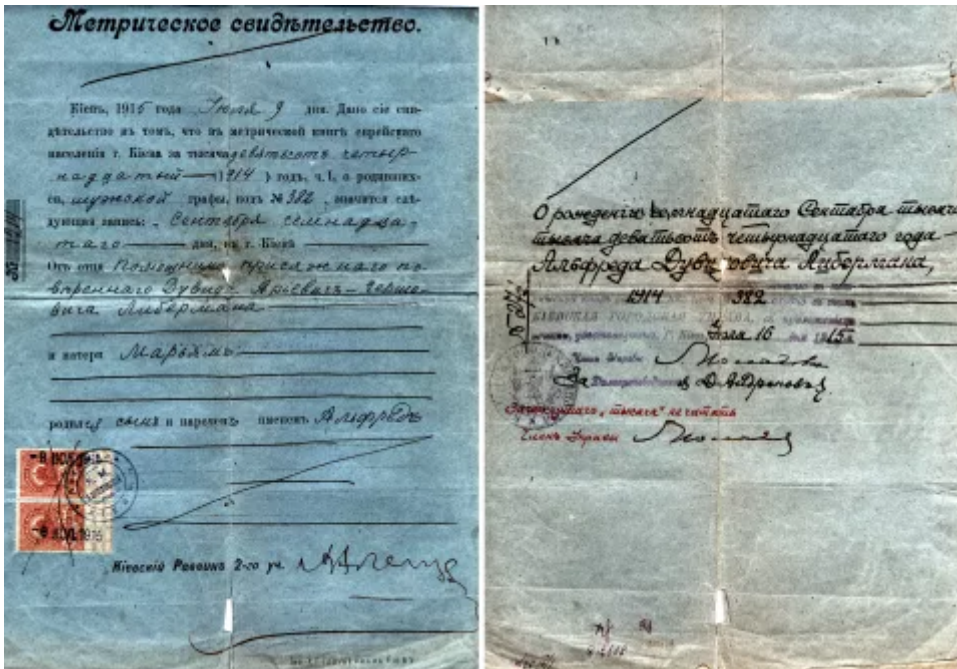 Метрическое свидѣтельство.
Кіевъ, 1915 года Іюля 9 дня. Дано сіе сви-
дѣтельство въ томъ, что въ метрической книгѣ еврейскаго
населенія г. Кіева за тысяча девятьсотъ четыр-
надцатый (1914) годъ, ч. I, о родивших-
ся, мужской графы, подъ № 382, значится слѣ-
дующая запись: „Сентября семнадца-
таго дня, въ г. Кіевѣ
Отъ отца Помощника присяжнаго по-
вѣреннаго Дувида Арьевича-Герше-
вича Либермана
и матери Марьямъ
родился сынъ и нареченъ именемъ Альфредъ
Кіевскій Раввинъ 2-го уч.
О рожденіи Сентября тысяча
тысяча девятьсотъ четырнадцатаго года
Альфреда Дувидовича Либермана,
1914 382
КІЕВСКАЯ ГОРОДСКАЯ УПРАВА,
Іюля 16 1915
Членъ Управы
За
Зачеркнутаго „тысяча" не читать
Членъ Управы